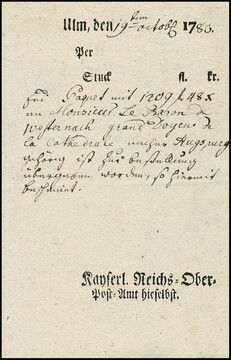 Ulm, den 19ten octobr 1780.
Per
Stuck fl. kr.
Ein Paquet mit 1209 f 48 x
an Monsieur Le Baron de
Westernach grand Doyen de
la Cathedrale nacher Augspurg
gehörig ist zur bestellung
übergeben worden, so hiermit
bescheint.
Kayserl. Reichs-Ober-
Post-Amt hieselbst.